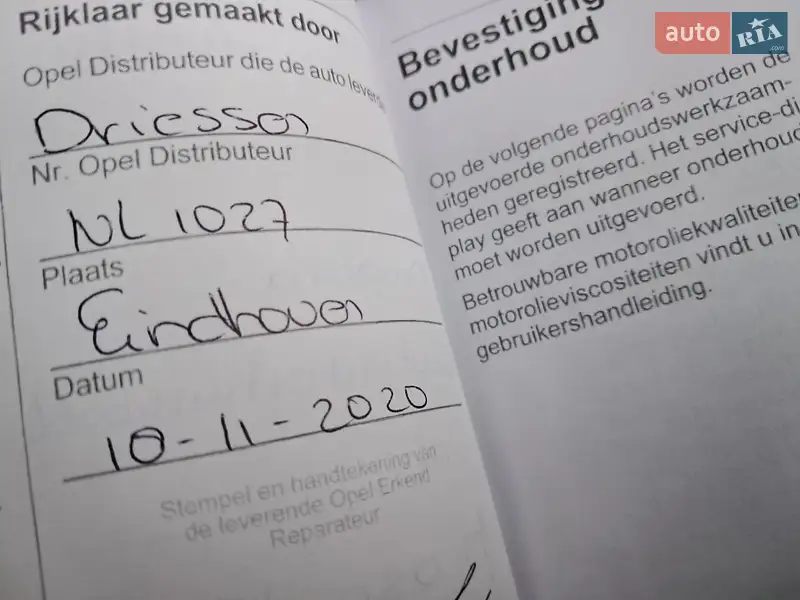 Rijklaar gemaakt door
Opel Distributeur die de auto levers
Driessen
Nr. Opel Distributeur
NL 1027
Plaats
Eindhoven
Datum
10-11-2020
Stempel en handtekening van
de leverende Opel Erkend
Reparateur
Bevestiging
onderhoud
Op de volgende pagina's worden de
uitgevoerde onderhoudswerkzaam-
heden geregistreerd. Het service-di
play geeft aan wanneer onderhoud
moet worden uitgevoerd.
Betrouwbare motoroliekwaliteiten
motorolieviscositeiten vindt u in
gebruikershandleiding.
auto RIA
.com